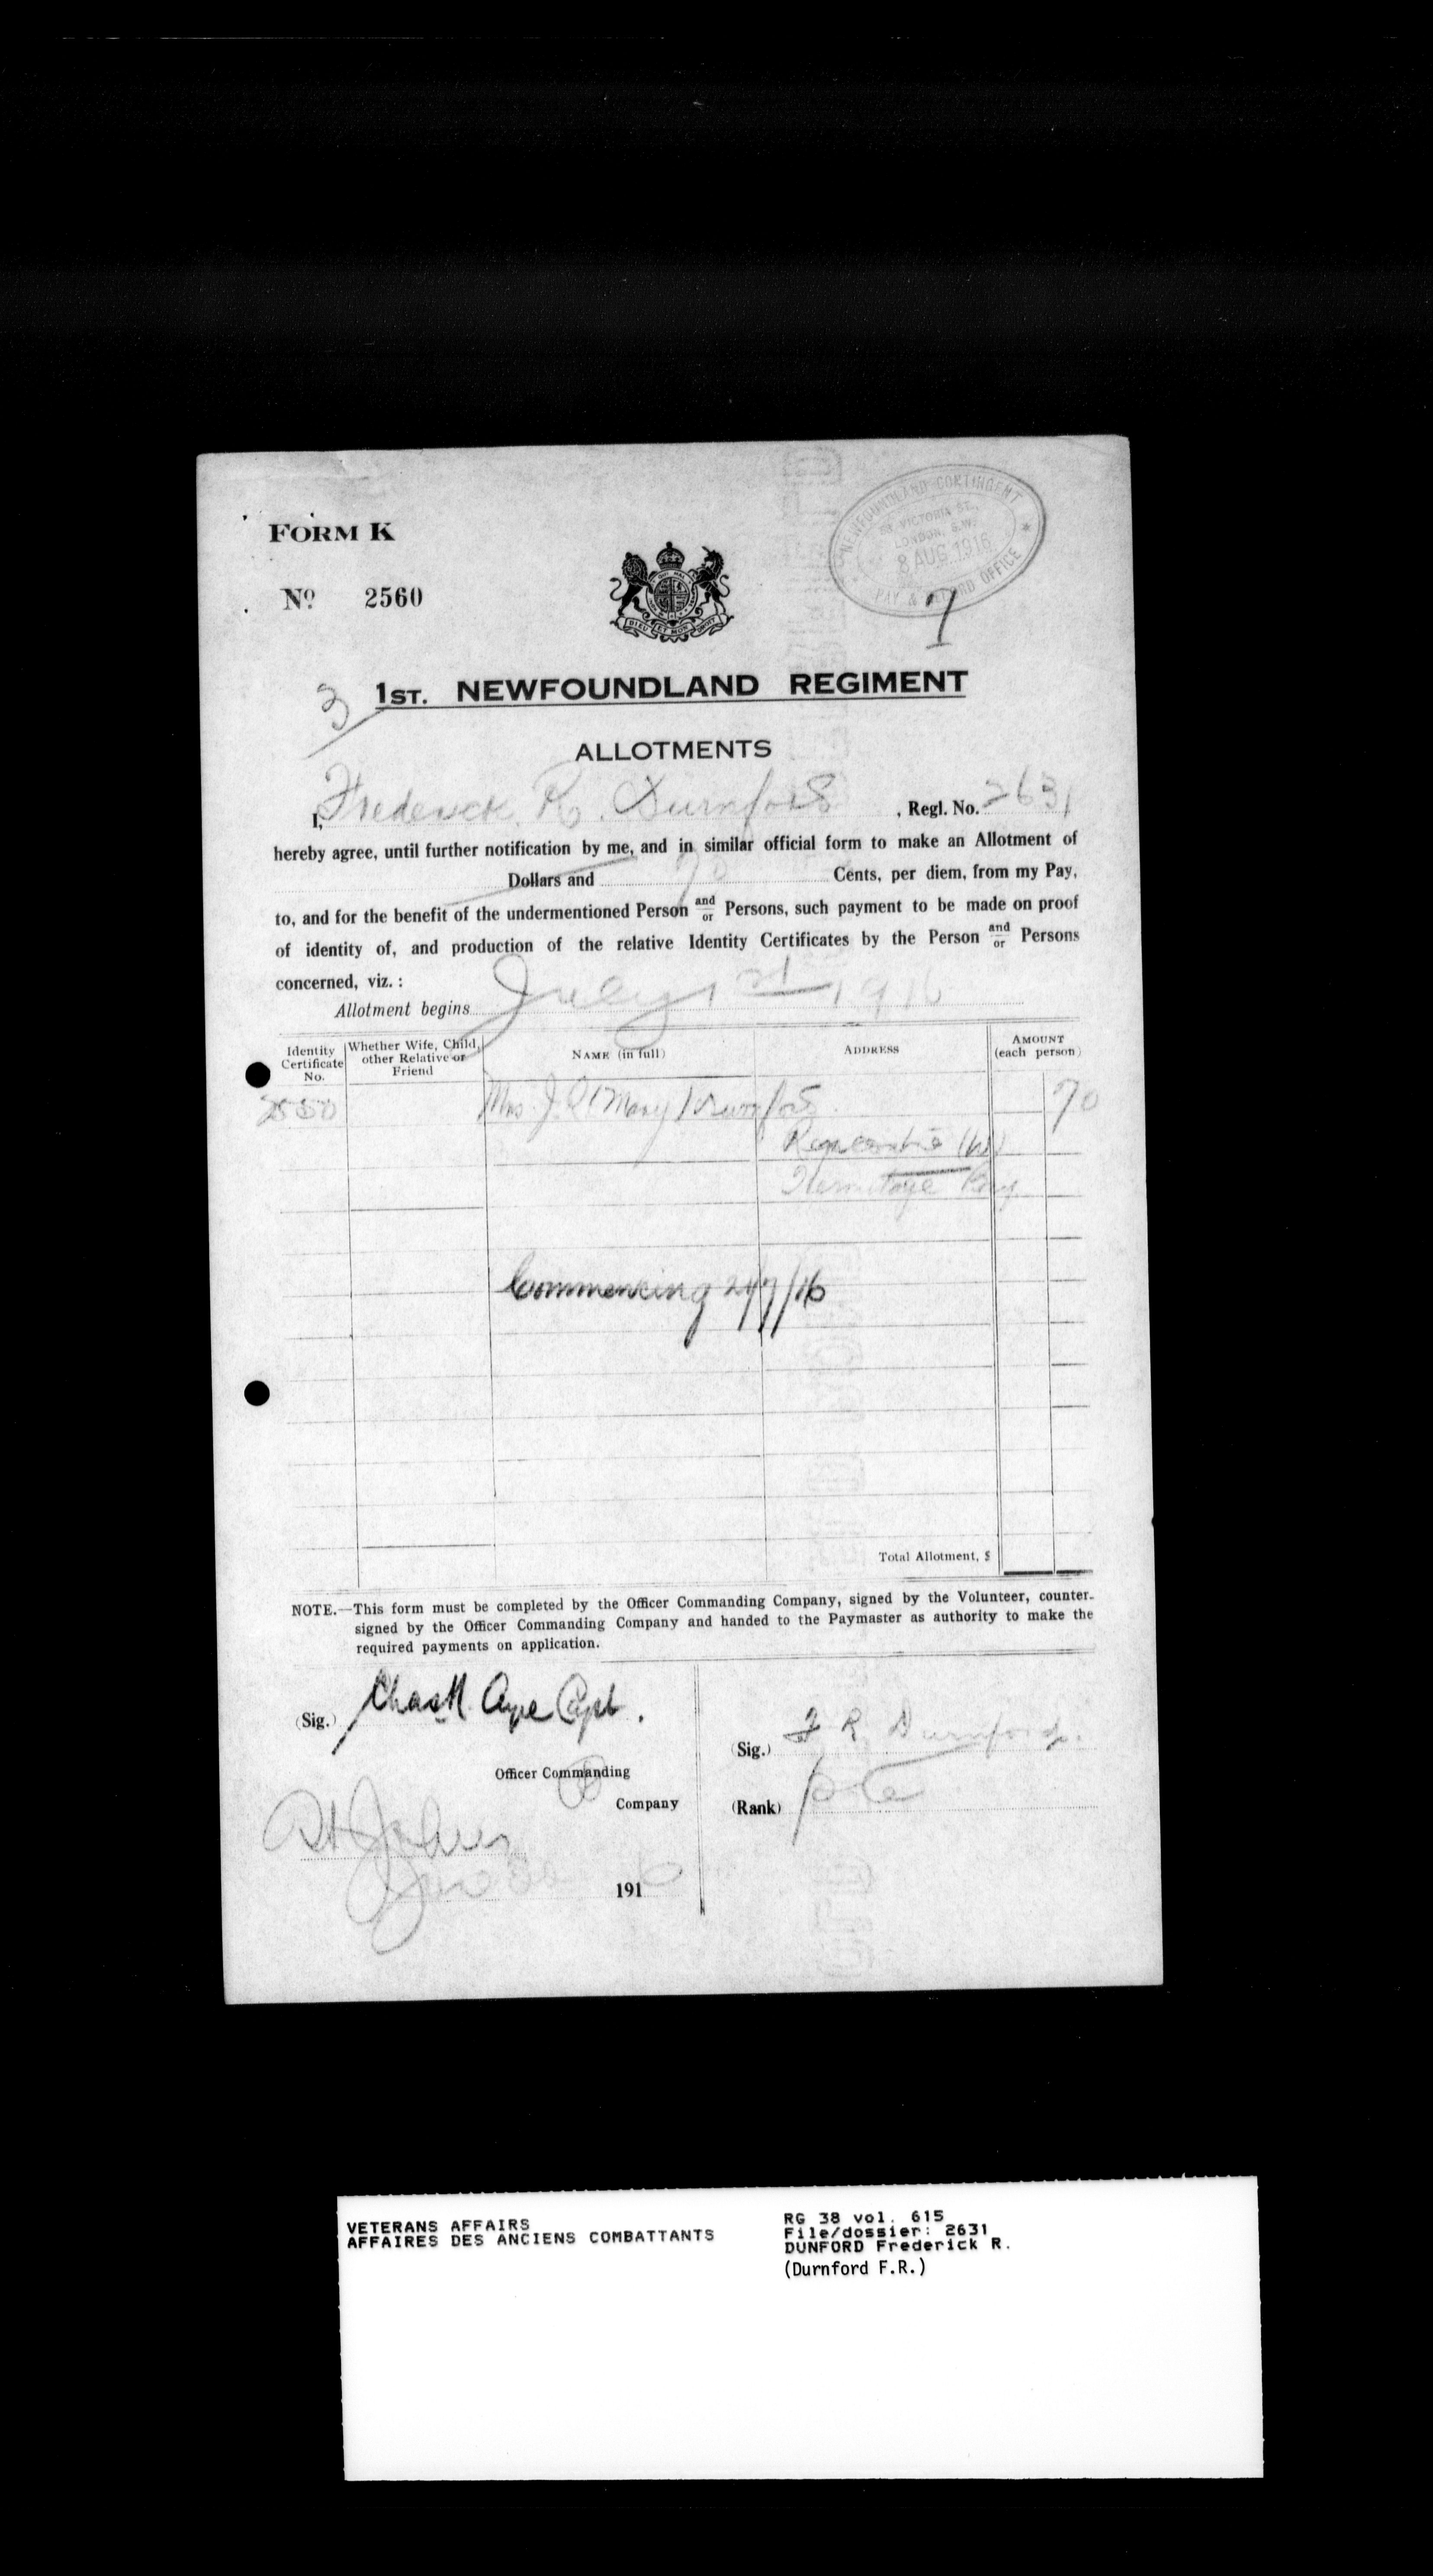 FORM K
NEWFOUNDLAND CONTINGENT
58 VICTORIA ST.,
LONDON, S.W.
8 AUG 1916
PAY & RECORD OFFICE
7
Nº 2560
DIEU ET MON DROIT
3
1ST. NEWFOUNDLAND REGIMENT
ALLOTMENTS
I, Frederick R. Durnford, Regl. No. 2631
hereby agree, until further notification by me, and in similar official form to make an Allotment of
Dollars and 70 Cents, per diem, from my Pay,
to, and for the benefit of the undermentioned Person and/or Persons, such payment to be made on proof
of identity of, and production of the relative Identity Certificates by the Person and/or Persons
concerned, viz. :
Allotment begins July 1st 1916
Identity Certificate No. Whether Wife, Child, other Relative or Friend NAME (in full) ADDRESS AMOUNT (each person)
Mrs. J. (Mary) Durnford 70
Rencontre (W)
Hermitage Bay
Commencing /7/16
Total Allotment, $
NOTE.—This form must be completed by the Officer Commanding Company, signed by the Volunteer, counter-
signed by the Officer Commanding Company and handed to the Paymaster as authority to make the
required payments on application.
(Sig.) Chas Aye Capt.
(Sig.) F R Durnford.
Officer Commanding
Company
(Rank) pte
St Johns
June 191 6
VETERANS AFFAIRS
AFFAIRES DES ANCIENS COMBATTANTS
RG 38 vol. 615
File/dossier: 2631
DUNFORD Frederick R.
(Durnford F.R.)